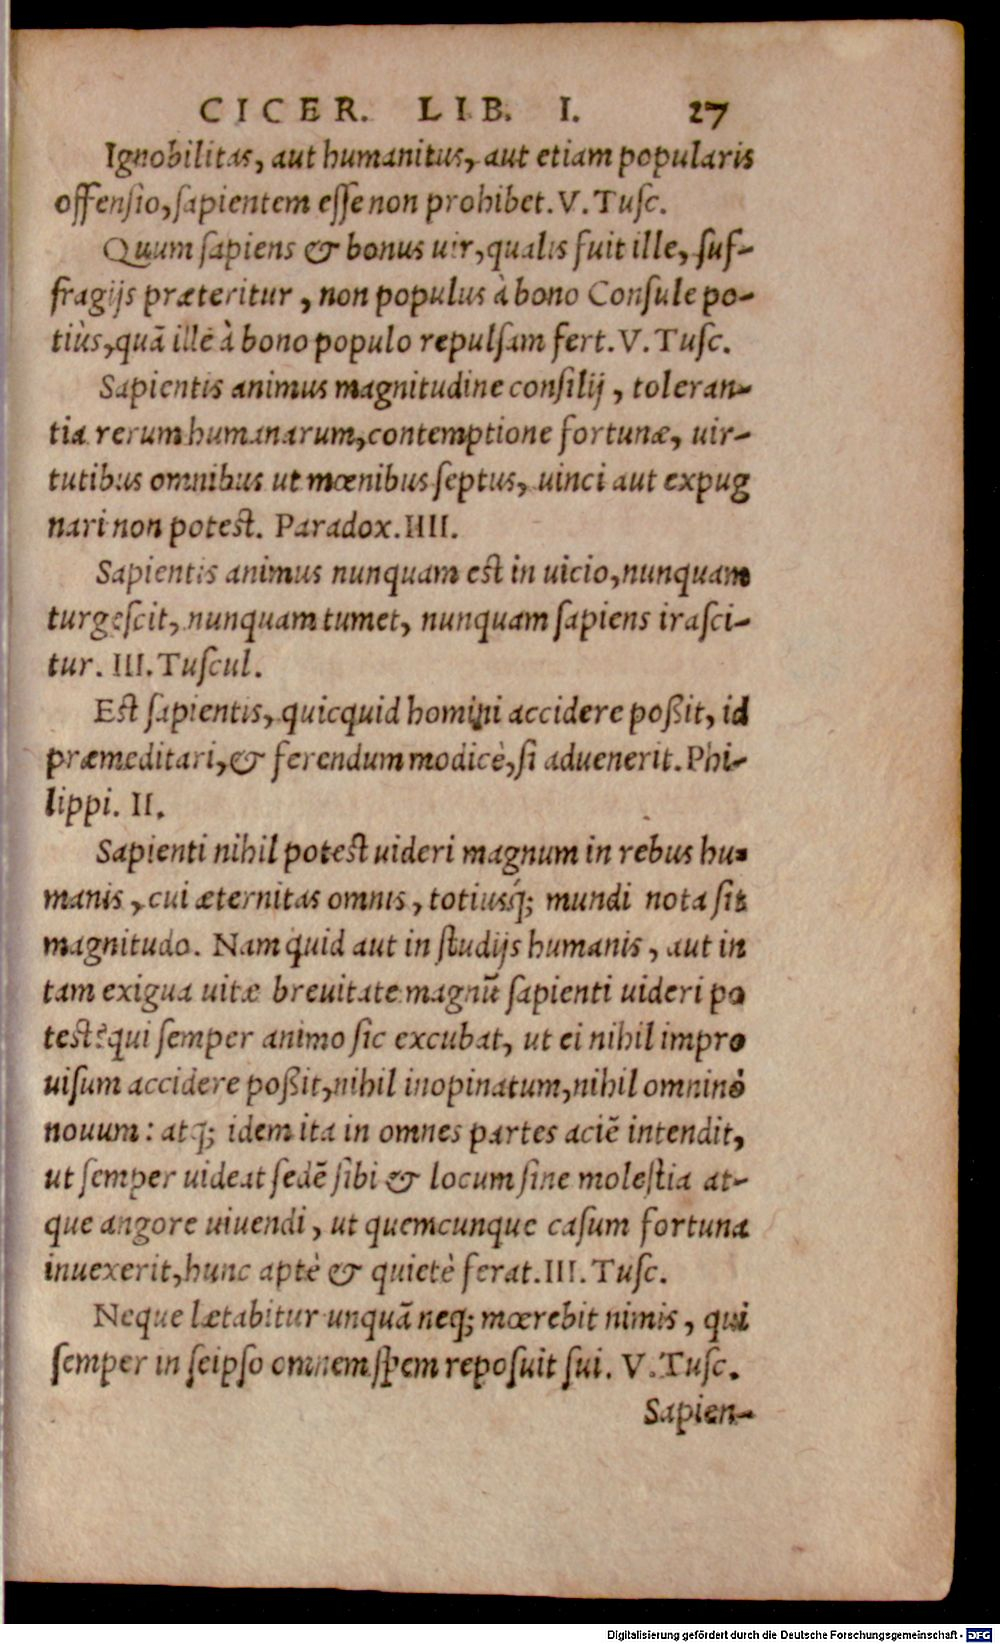 CICER. LIB. I. 27
Ignobilitas, aut humanitus, aut etiam popularis
offensio, sapientem esse non prohibet. V. Tusc.
Quum sapiens & bonus uir, qualis fuit ille, suf-
fragijs præteritur, non populus à bono Consule po-
tiùs, quã ille à bono populo repulsam fert. V. Tusc.
Sapientis animus magnitudine consilij, toleran-
tia rerum humanarum, contemptione fortunæ, uir-
tutibus omnibus ut mœnibus septus, uinci aut expug
nari non potest. Paradox. IIII.
Sapientis animus nunquam est in uicio, nunquam
turgescit, nunquam tumet, nunquam sapiens irasci-
tur. III. Tuscul.
Est sapientis, quicquid homini accidere poßit, id
præmeditari, & ferendum modicè, si aduenerit. Phi-
lippi. II.
Sapienti nihil potest uideri magnum in rebus hu-
manis, cui æternitas omnis, totiusq́; mundi nota sit
magnitudo. Nam quid aut in studijs humanis, aut in
tam exigua uitæ breuitate magnũ sapienti uideri po
test? qui semper animo sic excubat, ut ei nihil impro
uisum accidere poßit, nihil inopinatum, nihil omninò
nouum: atq; idem ita in omnes partes aciẽ intendit,
ut semper uideat sedẽ sibi & locum sine molestia at-
que angore uiuendi, ut quemcunque casum fortuna
inuexerit, hunc aptè & quietè ferat. III. Tusc.
Neque lætabitur unquã neq; mœrebit nimis, qui
semper in seipso omnem spem reposuit sui. V. Tusc.
Sapien-
Digitalisierung gefördert durch die Deutsche Forschungsgemeinschaft - DFG